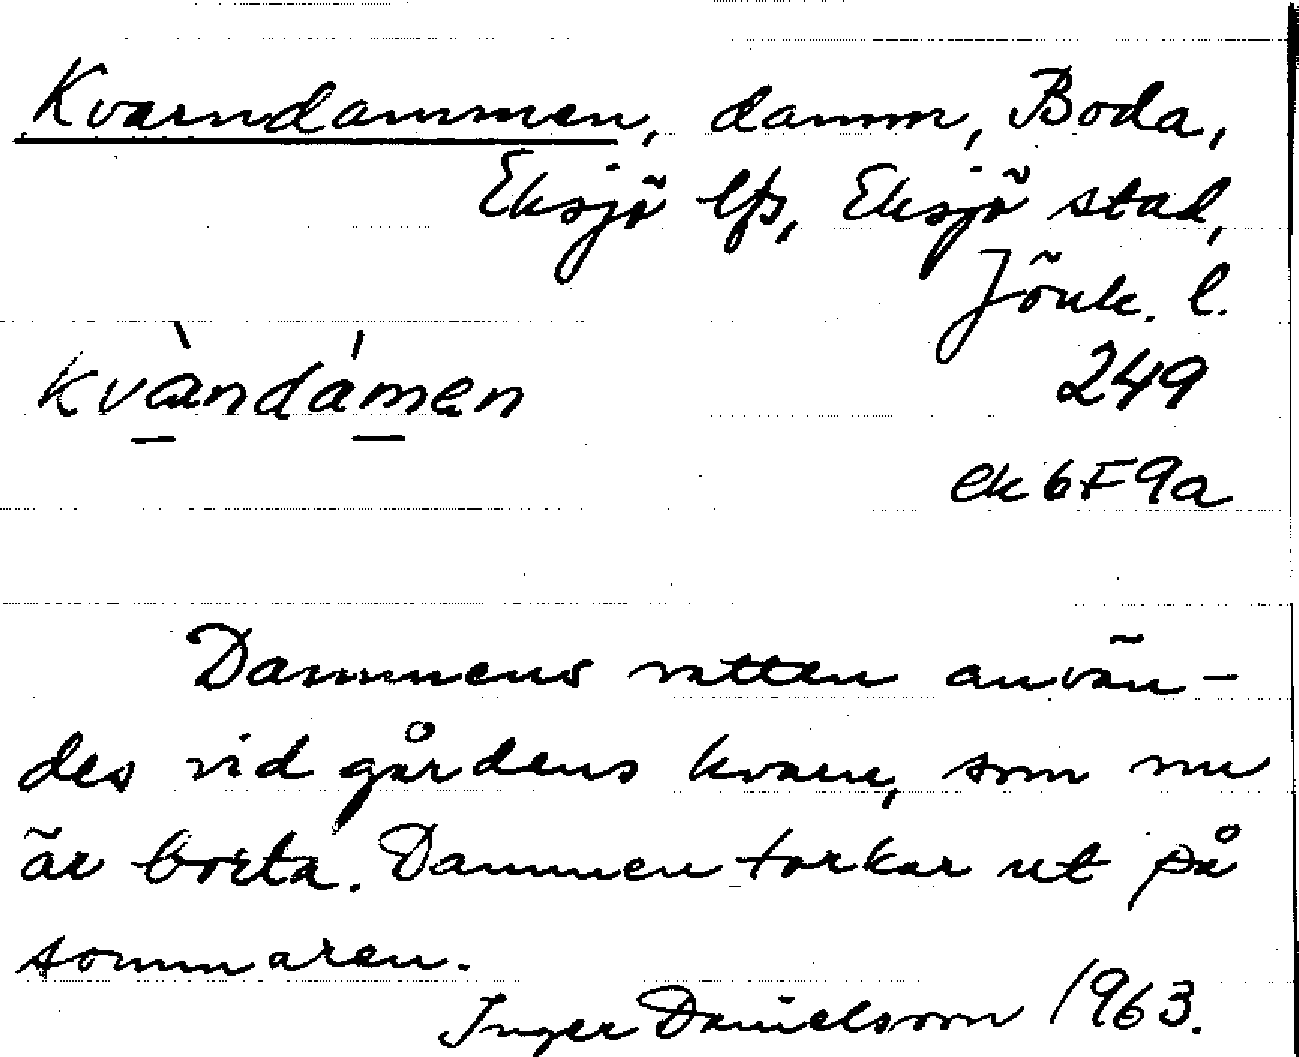 Kvarndammen, damm, Boda,
Eksjö lfs, Eksjö stad,
Jönk. l.
kvàndámen 249
ek 6F9a
Dammens vatten använ-
des vid gårdens kvarn, som nu
är borta. Dammen torkar ut på
sommaren.
Inger Danielsson 1963.